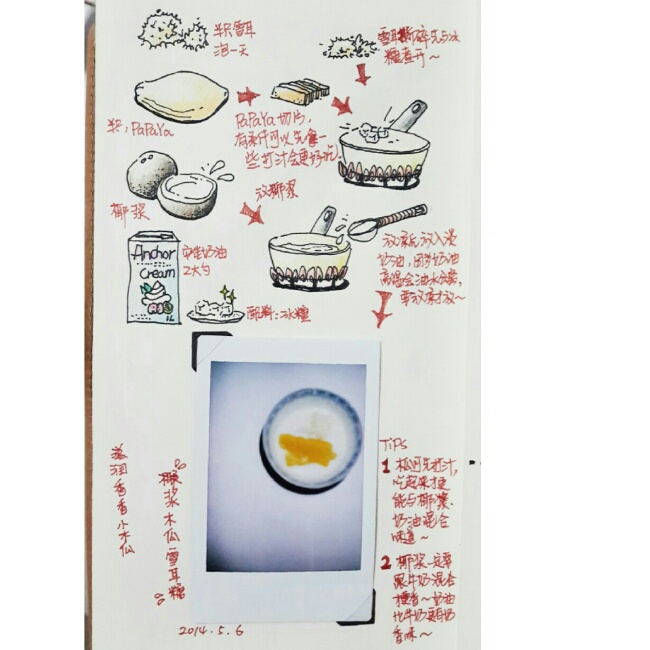 半只雪耳
泡一天
雪耳撕碎先与冰
糖煮开~
半只PaPaYa
PaPaYa 切片,
有条件可以先拿一
些打汁会更好吃).
椰浆
放椰浆
Anchor
Cream
1L
安佳奶油
2大勺
配料:冰糖
放凉后放入淡
奶油,因为奶油
高温会油水分离,
要放凉放~
滋润香香小木瓜
椰浆木瓜雪耳糖
Tips
1 木瓜可先打汁,
吃起来才更
能与椰浆.
奶油混合
味道~
2 椰浆一定要
跟牛奶混合
奶油
比牛奶更有奶
香味~
2014.5.6